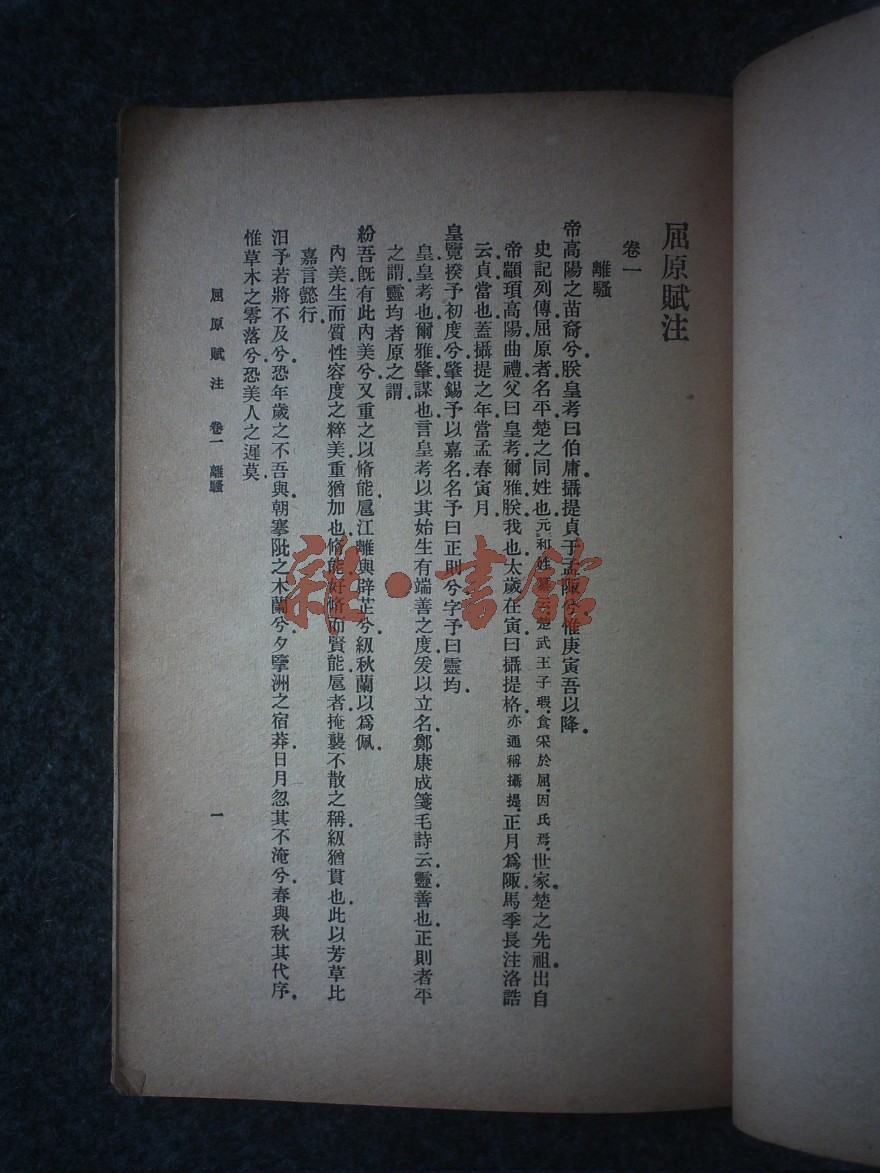 屈原賦注
卷一
離騷
帝高陽之苗裔兮朕皇考曰伯庸攝提貞于孟陬兮惟庚寅吾以降
史記列傳屈原者名平楚之同姓也元和姓纂云楚武王子瑕食采於屈因氏焉世家楚之先祖出自
帝顓頊高陽曲禮父曰皇考爾雅朕我也太歲在寅曰攝提格亦通稱攝提正月為陬馬季長注洛誥
云貞當也蓋攝提之年當孟春寅月
皇覽揆予初度兮肇錫予以嘉名名予曰正則兮字予曰靈均
皇皇考也爾雅肇謀也言皇考以其始生有端善之度爰以立名鄭康成箋毛詩云靈善也正則者平
之謂靈均者原之謂
紛吾旣有此內美兮又重之以脩能扈江離與辟芷兮紉秋蘭以為佩
內美生而質性容度之粹美重猶加也脩能好脩而賢能扈者掩襲不散之稱紉猶貫也此以芳草比
嘉言懿行
汨予若將不及兮恐年歲之不吾與朝搴阰之木蘭兮夕擥洲之宿莽日月忽其不淹兮春與秋其代序
惟草木之零落兮恐美人之遲莫
屈原賦注 卷一 離騷
一
雜·書館